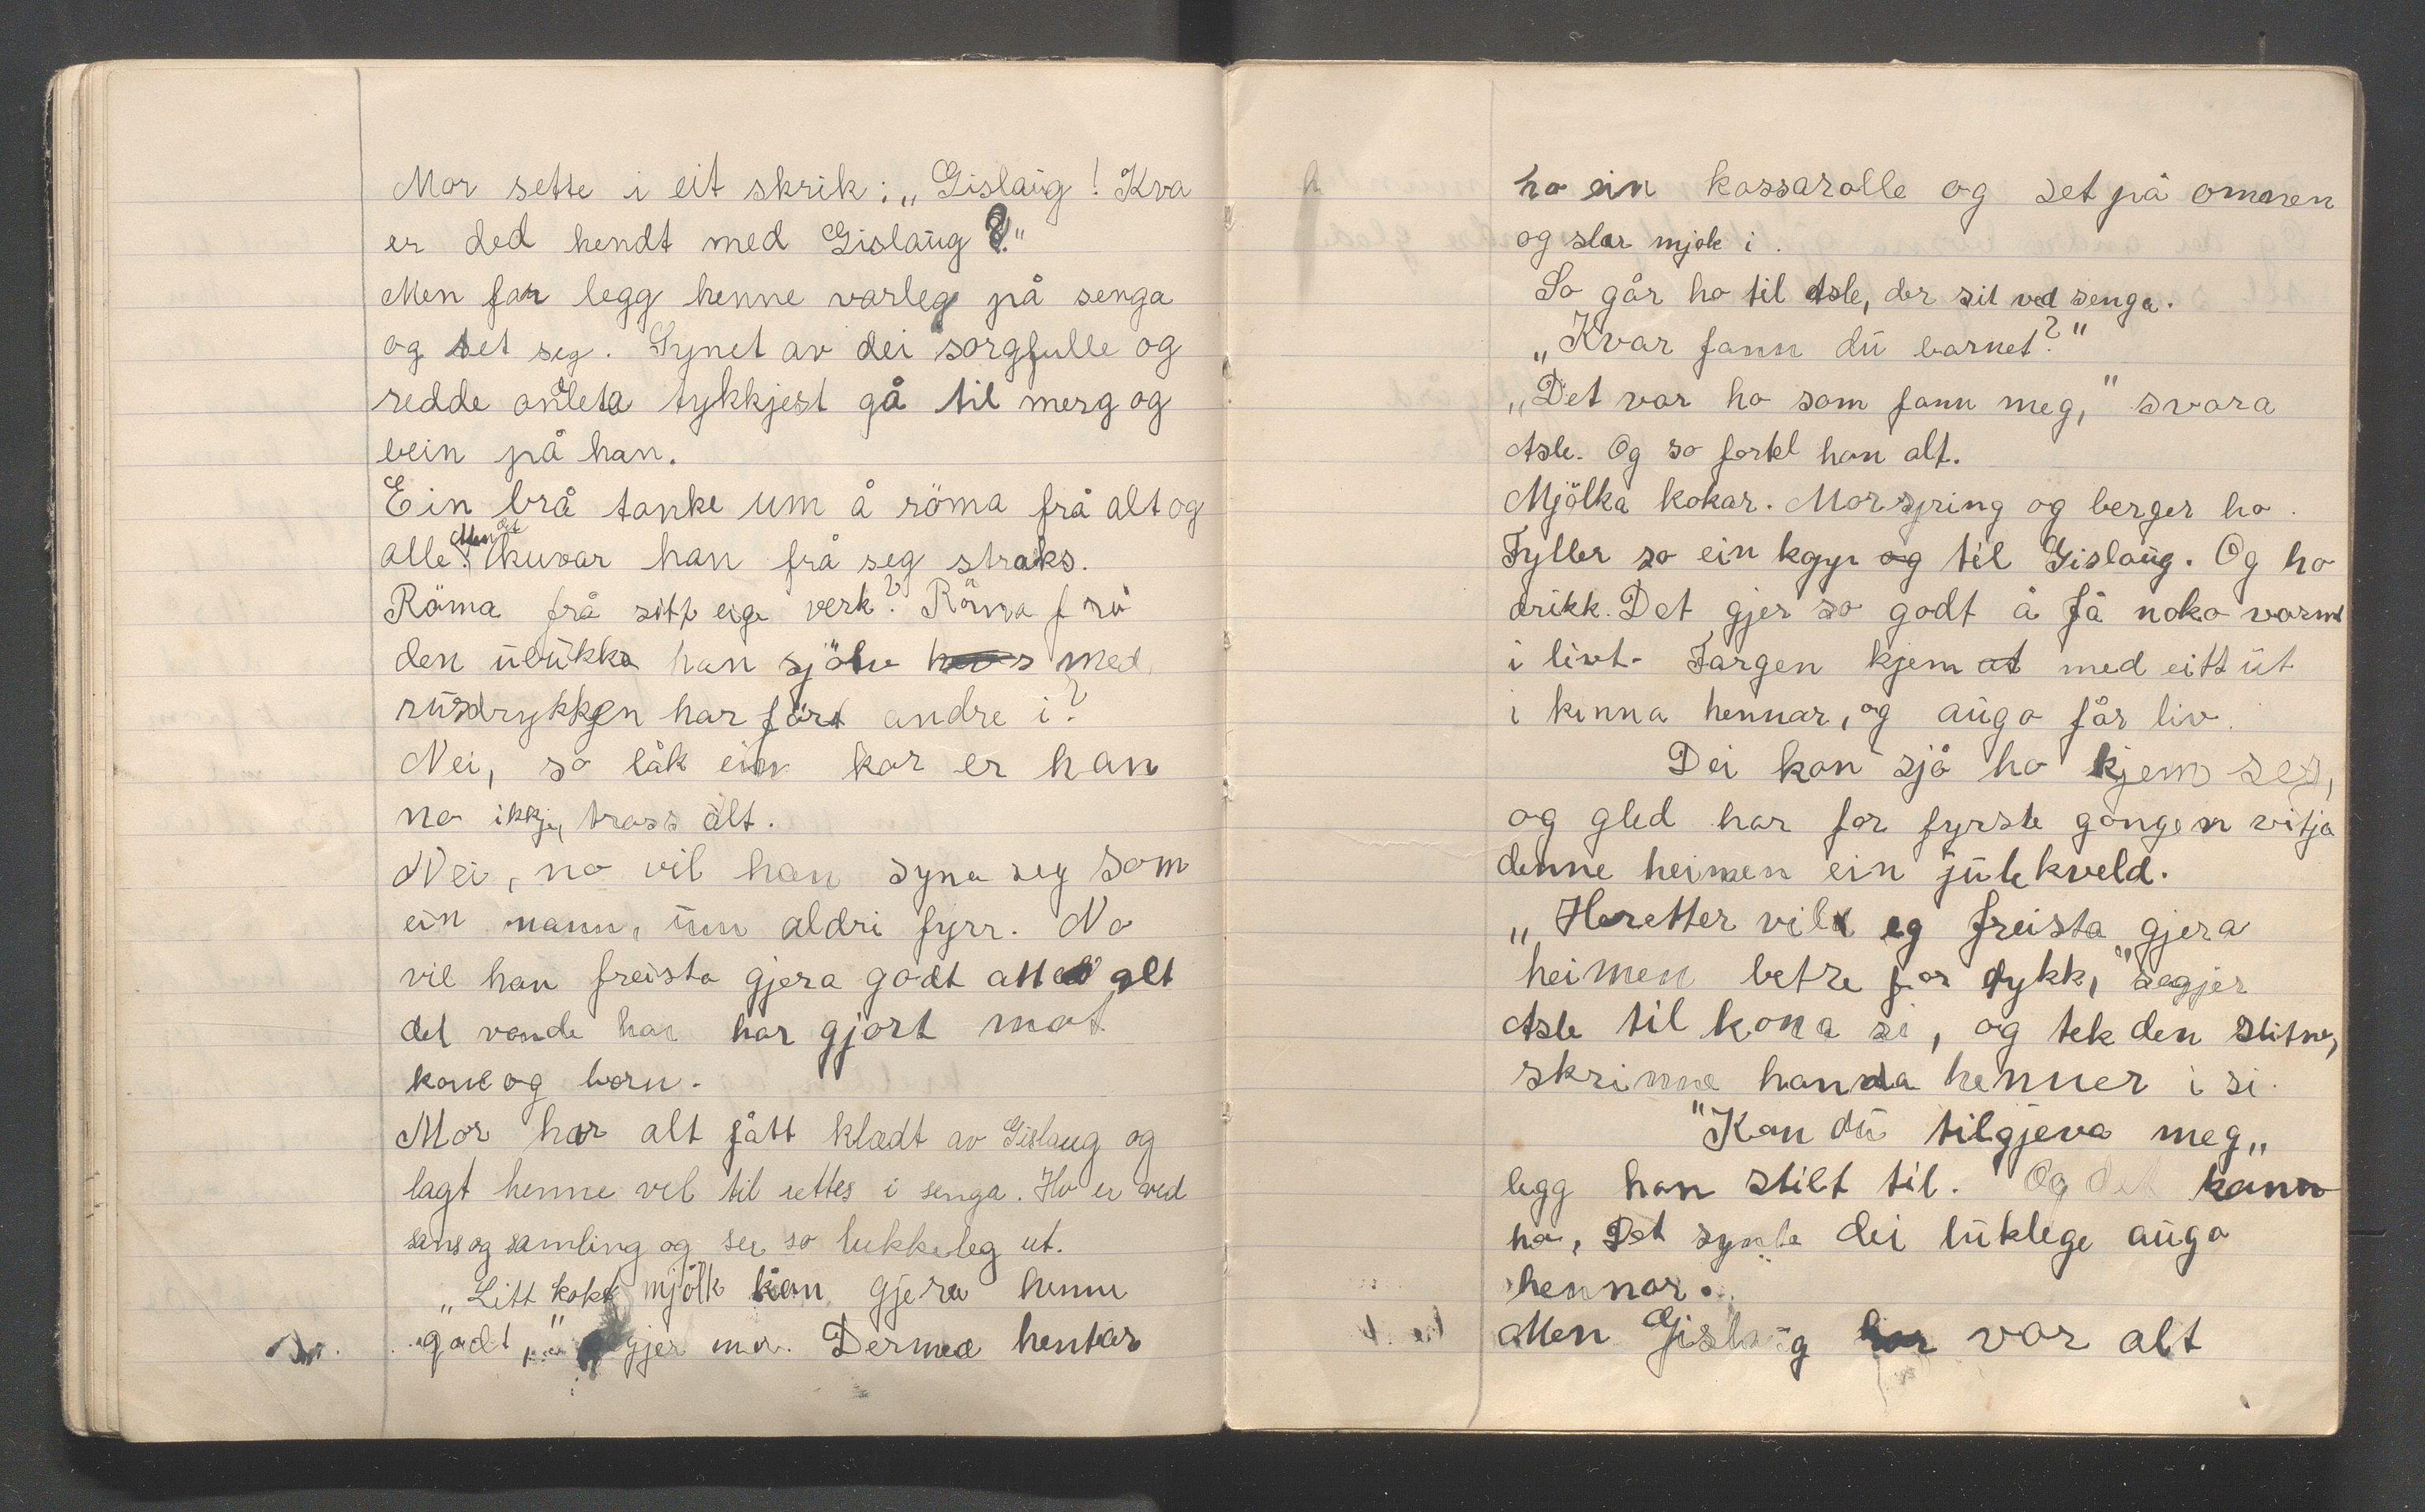 Mor sette i eit skrik: „Gislaug! Kva
er ded hendt med Gislaug?"
Men far legg henne varleg på senga
og set seg. Synet av dei sorgfulle og
redde andleta tykkjest gå til merg og
bein på han.
Ein brå tanke um å röma frå alt og
alle. Men det kuvar han frå seg straks.
Röma frå sitt eige verk? Röma frå
den ulukka han sjölv med
rusdrykkjen har fört andre i?
Nei, so låk ein kar er han
no ikkje, trass alt.
Nei, no vil han syna seg som
ein mann, um aldri fyrr. No
vil han freista gjera godt att alt
det vonde han har gjort mot
kone og born.
Mor har alt fått klædt av Gislaug og
lagt henne vel til rettes i senga. Ho er ved
sans og samling og ser so lukkeleg ut.
„Litt kokt mjölk kan gjera henne
godt," gjer mor. Dermed hentar
ho ein kassarolle og set på omnen
og slær mjök i.
So går ho til Asle, der sit ved senga.
„Kvar fann du barnet?"
„Det var ho som fann meg," svara
Asle. Og so fortel han alt.
Mjölka kokar. Mor spring og berger ho.
Fyller so ein kopp og til Gislaug. Og ho
drikk. Det gjer so godt å få noko varmt
i livt. Fargen kjem at med eitt ut
i kinna hennar, og augo får liv.
Dei kan sjå ho kjem seg,
og gled har for fyrste gongen vitja
denne heimen ein julekveld.
„Heretter vil eg freista gjera
heimen betre for dykk," segjer
Asle til kona si, og tek den slitne,
skrinne handa henner i si.
"Kan du tilgjeva meg„
legg han stilt til. Og det kann
ho, Det synte dei luklege augo
hennar.
Men Gislaug var alt